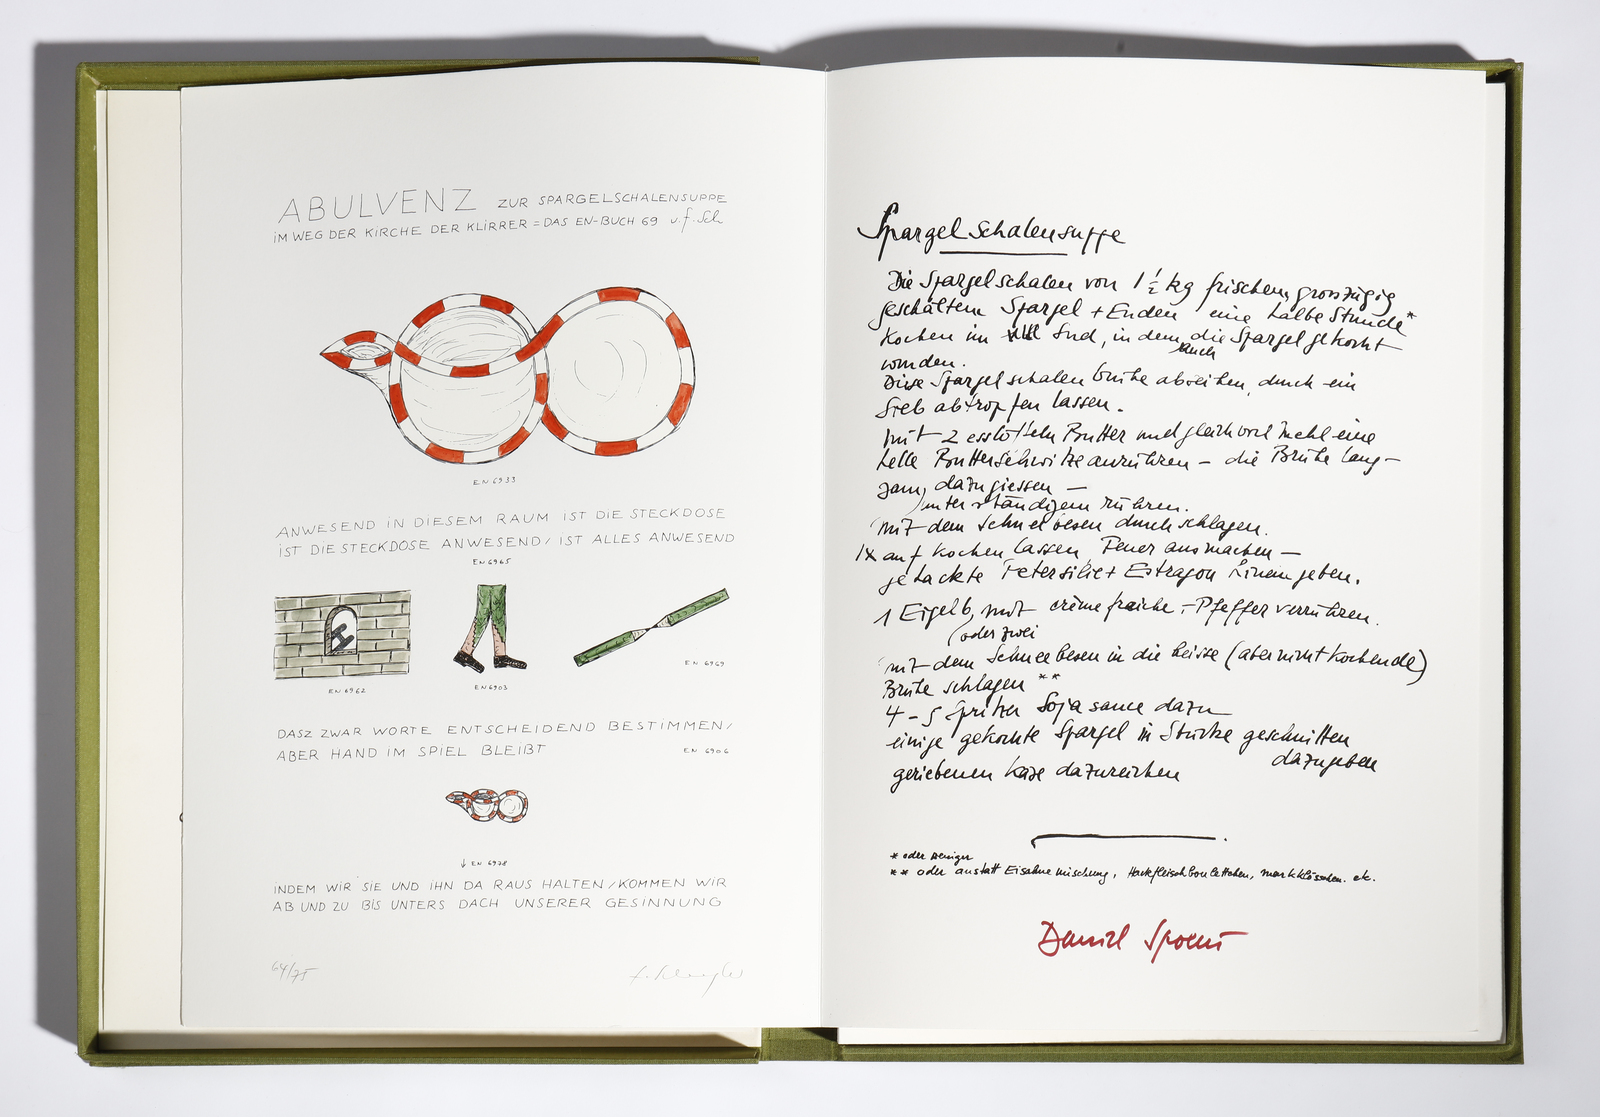 ABULVENZ ZUR SPARGELSCHALENSUPPE
IM WEG DER KIRCHE DER KLIRRER = DAS EN-BUCH 69 v. f. Sch
EN 6933
ANWESEND IN DIESEM RAUM IST DIE STECKDOSE
IST DIE STECKDOSE ANWESEND/ IST ALLES ANWESEND
EN 6965
EN 6962
EN 6903
EN 6969
DASZ ZWAR WORTE ENTSCHEIDEND BESTIMMEN/
ABER HAND IM SPIEL BLEIBT
EN 6906
↓ EN 6978
INDEM WIR SIE UND IHN DA RAUS HALTEN/KOMMEN WIR
AB UND ZU BIS UNTERS DACH UNSERER GESINNUNG
64/75
Spargelschalensuppe
Die Spargelschalen von 1 1/2 kg frischem, grosszügig
geschältem Spargel + Enden eine halbe Stunde*
kochen im Sud, in dem die Spargel gekocht
auch
wurden.
Diese Spargelschalenbrühe abseihen, durch ein
Sieb abtropfen lassen.
mit 2 esslöffeln Butter und gleichviel Mehl eine
helle Butterschwitze anrühren – die Brühe lang-
sam, dazugiessen –
unter ständigem rühren.
mit dem Schneebesen durchschlagen.
1x aufkochen lassen, Feuer ausmachen –
gehackte Petersilie + Estragon hineingeben.
1 Eigelb, mit crème fraîche – Pfeffer verrühren.
(oder zwei
mit dem Schneebesen in die heisse (aber nicht kochende)
Brühe schlagen **
4 – 5 Spritzer Sojasauce dazu
einige gekochte Spargel in Stücke geschnitten
dazugeben
geriebenen Käse dazureichen
* oder weniger
** oder anstatt Eisahnemischung, Hackfleischbouletten, markklösschen. etc.
Daniel Spoerri